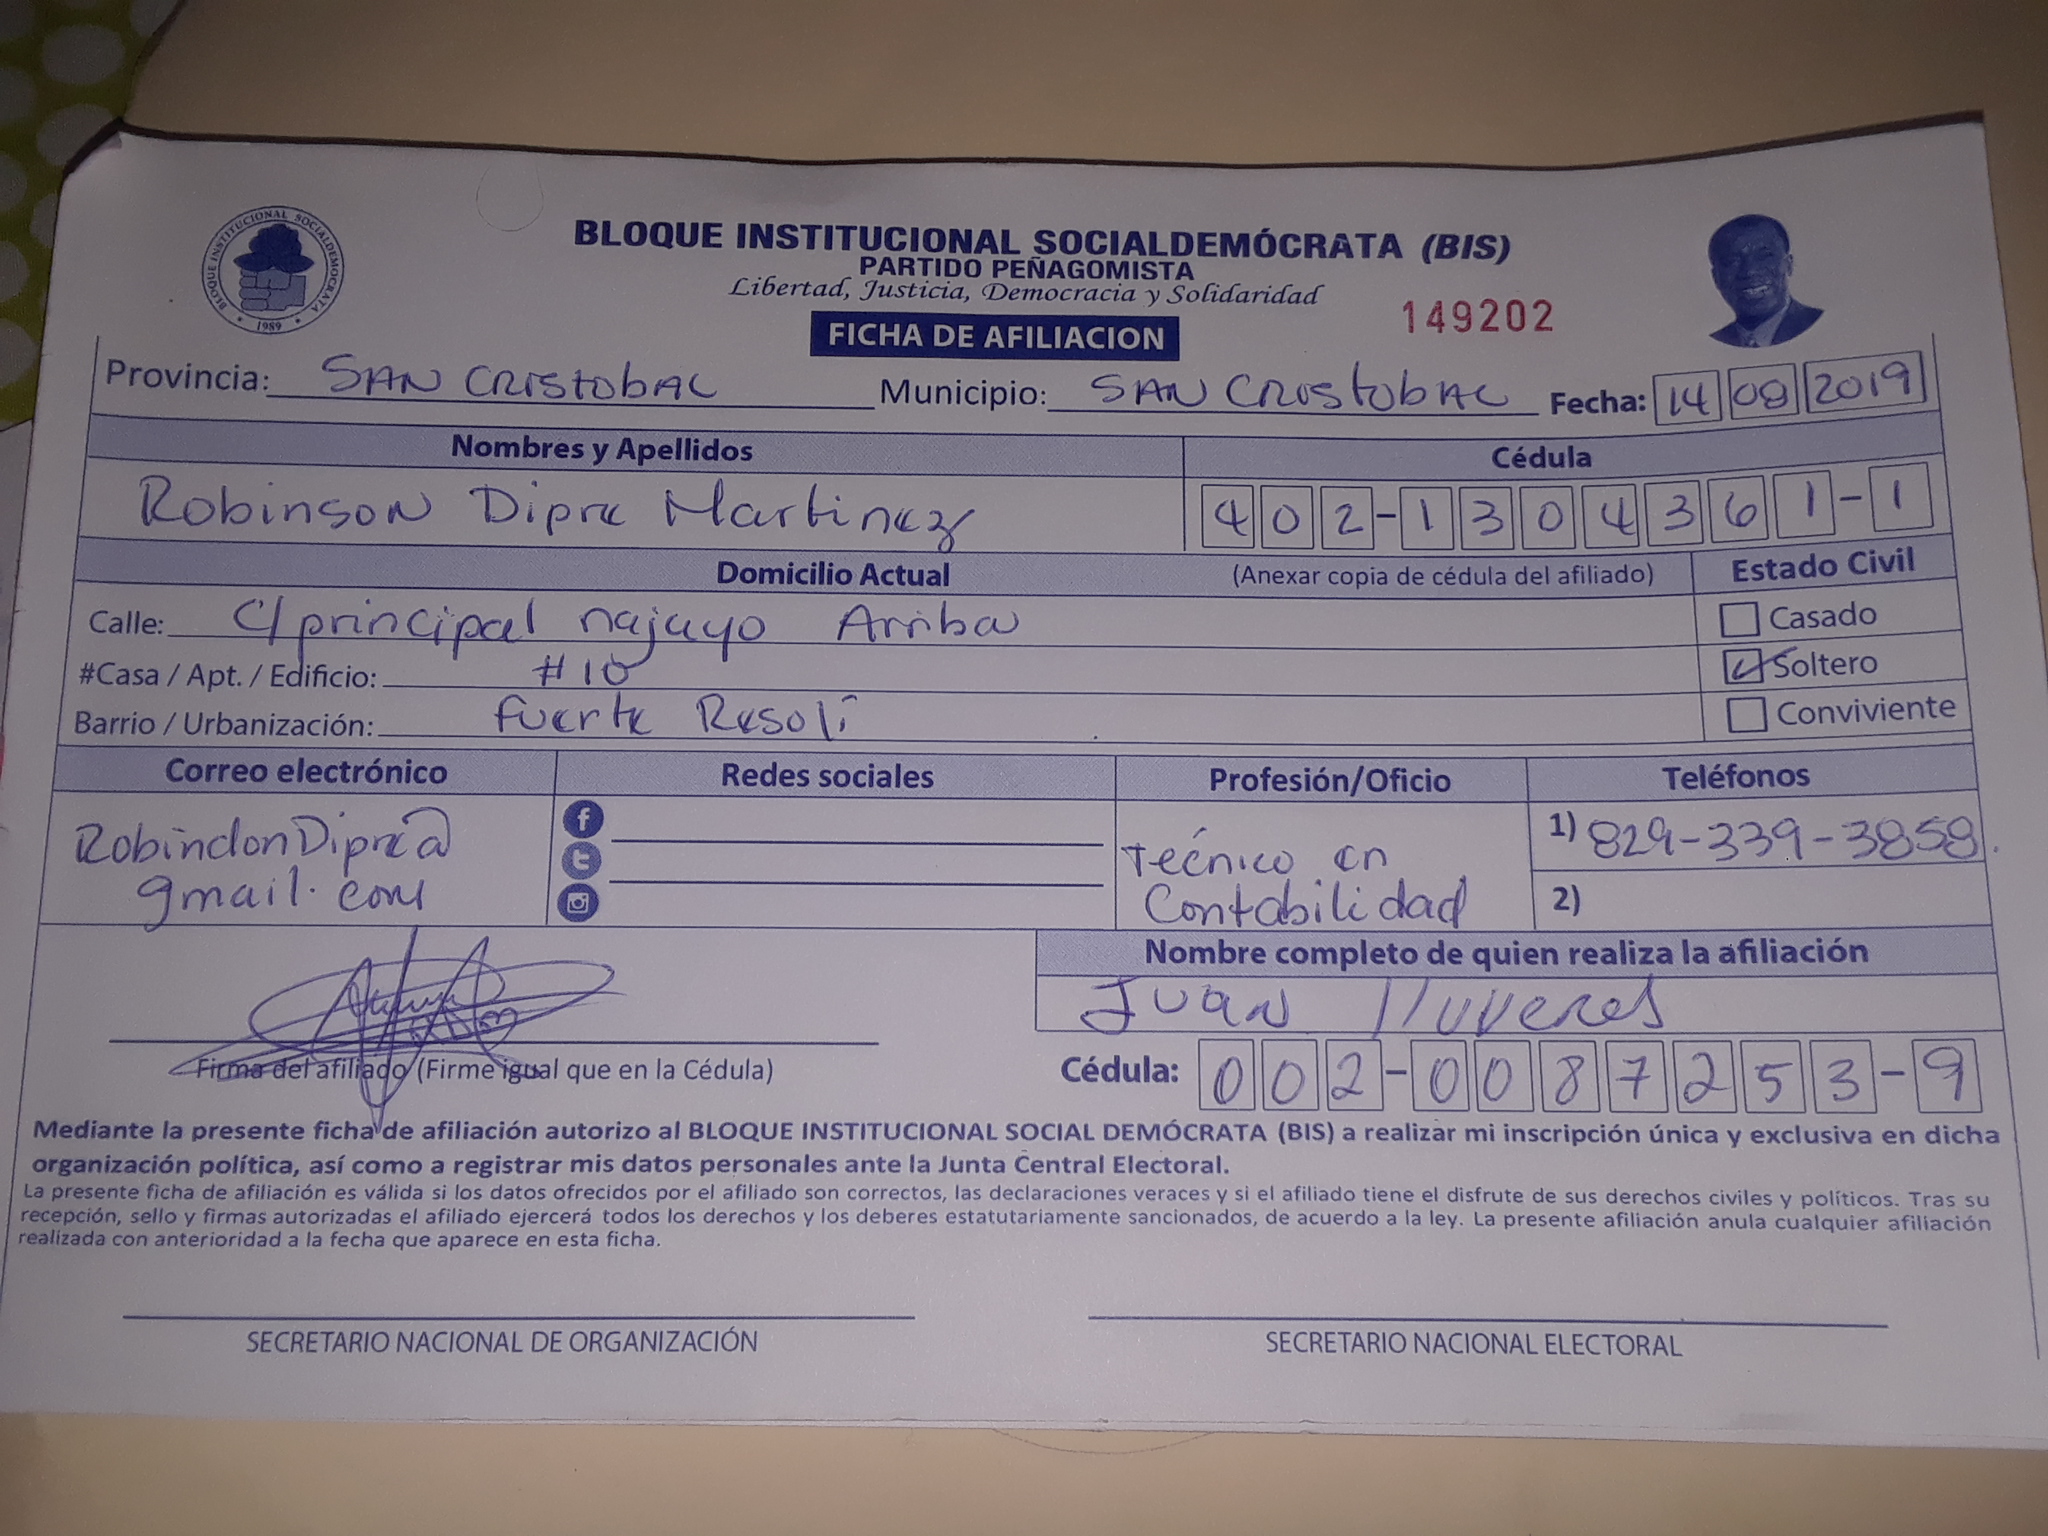 BLOQUE INSTITUCIONAL SOCIALDEMOCRATA
1989
BLOQUE INSTITUCIONAL SOCIALDEMÓCRATA (BIS)
PARTIDO PEÑAGOMISTA
Libertad, Justicia, Democracia y Solidaridad
149202
FICHA DE AFILIACION
Provincia: SAN CRISTOBAL Municipio: SAN CRISTOBAL Fecha: 14 08 2019
Nombres y Apellidos Cédula
Robinson Dipre Martinez 402-1304361-1
Domicilio Actual (Anexar copia de cédula del afiliado) Estado Civil
Calle: C/principal najayo Arriba Casado
#Casa / Apt. / Edificio: #10 Soltero
Barrio / Urbanización: fuerte Resoli Conviviente
Correo electrónico Redes sociales Profesión/Oficio Teléfonos
RobindonDipre@ Técnico en 1) 829-339-3858
gmail.com Contabilidad 2)
Nombre completo de quien realiza la afiliación
Juan lluveres
Firma del afiliado (Firme igual que en la Cédula) Cédula: 002-0087253-9
Mediante la presente ficha de afiliación autorizo al BLOQUE INSTITUCIONAL SOCIAL DEMÓCRATA (BIS) a realizar mi inscripción única y exclusiva en dicha
organización política, así como a registrar mis datos personales ante la Junta Central Electoral.
La presente ficha de afiliación es válida si los datos ofrecidos por el afiliado son correctos, las declaraciones veraces y si el afiliado tiene el disfrute de sus derechos civiles y políticos. Tras su
recepción, sello y firmas autorizadas el afiliado ejercerá todos los derechos y los deberes estatutariamente sancionados, de acuerdo a la ley. La presente afiliación anula cualquier afiliación
realizada con anterioridad a la fecha que aparece en esta ficha.
SECRETARIO NACIONAL DE ORGANIZACIÓN SECRETARIO NACIONAL ELECTORAL